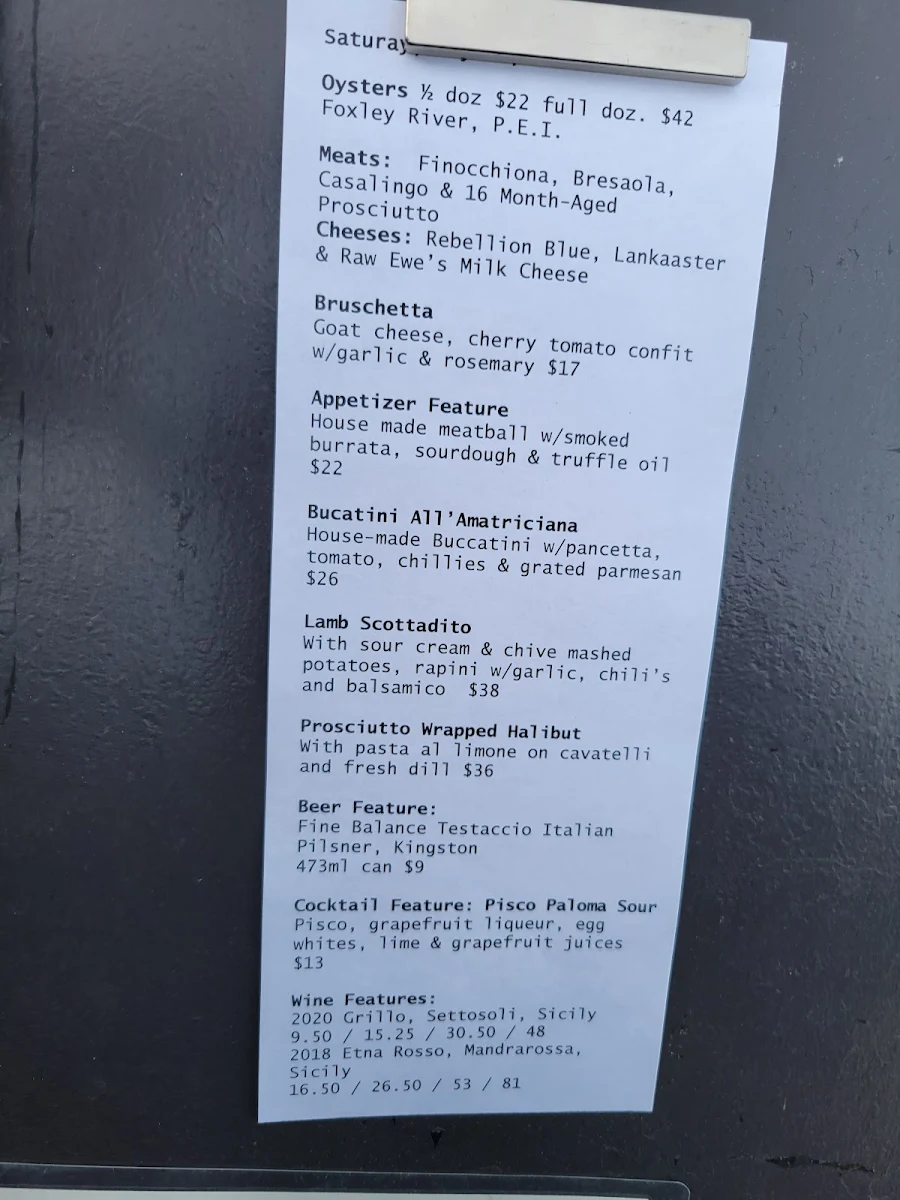 Saturay
Oysters ½ doz $22 full doz. $42
Foxley River, P.E.I.
Meats: Finocchiona, Bresaola,
Casalingo & 16 Month-Aged
Prosciutto
Cheeses: Rebellion Blue, Lankaaster
& Raw Ewe's Milk Cheese
Bruschetta
Goat cheese, cherry tomato confit
w/garlic & rosemary $17
Appetizer Feature
House made meatball w/smoked
burrata, sourdough & truffle oil
$22
Bucatini All'Amatriciana
House-made Buccatini w/pancetta,
tomato, chillies & grated parmesan
$26
Lamb Scottadito
With sour cream & chive mashed
potatoes, rapini w/garlic, chili's
and balsamico $38
Prosciutto Wrapped Halibut
With pasta al limone on cavatelli
and fresh dill $36
Beer Feature:
Fine Balance Testaccio Italian
Pilsner, Kingston
473ml can $9
Cocktail Feature: Pisco Paloma Sour
Pisco, grapefruit liqueur, egg
whites, lime & grapefruit juices
$13
Wine Features:
2020 Grillo, Settosoli, Sicily
9.50 / 15.25 / 30.50 / 48
2018 Etna Rosso, Mandrarossa,
Sicily
16.50 / 26.50 / 53 / 81